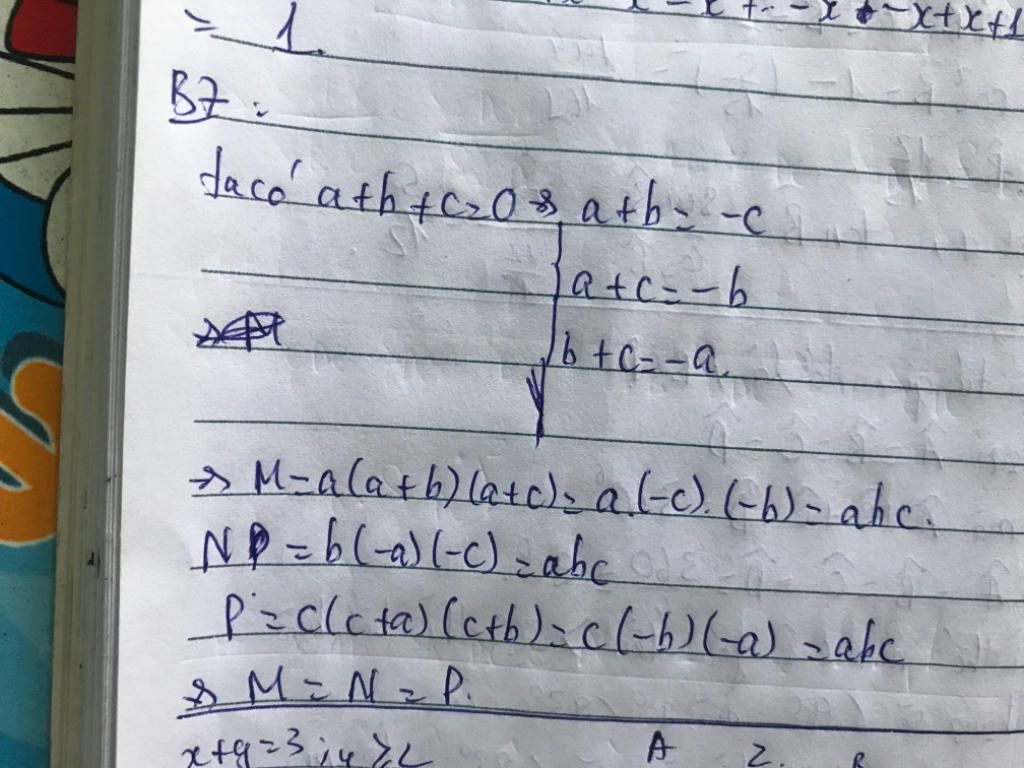 = 1.
B7:
ta có a+b+c=0 => a+b = -c
a+c = -b
b+c = -a.
=> M = a(a+b)(a+c) = a.(-c).(-b) = abc.
N = b(-a)(-c) = abc
P = c(c+a)(c+b) = c(-b)(-a) = abc
=> M = N = P.
x+y=3